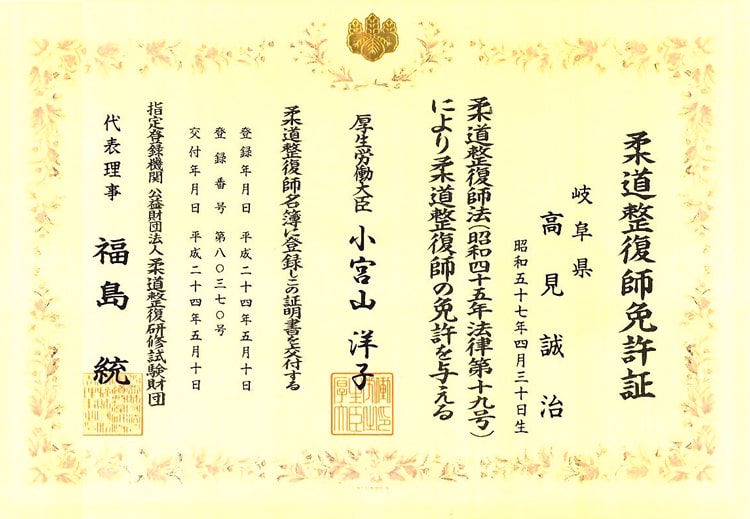 柔道整復師免許証
岐阜県
高見誠治
昭和五十七年四月三十日生
柔道整復師法(昭和四十五年法律第十九号)
により柔道整復師の免許を与える
厚生労働大臣 小宮山洋子
柔道整復師名簿に登録しこの証明書を交付する
登録年月日 平成二十四年五月十日
登録番号 第八〇三七〇号
交付年月日 平成二十四年五月十日
指定登録機関 公益財団法人柔道整復研修試験財団
代表理事 福島統